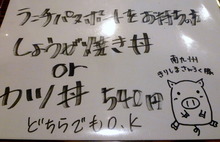 ランチパスポートをお持ちの
しょうが焼き丼
or
カツ丼 540円
どちらでもO.K
南九州
きりしまさんろく豚